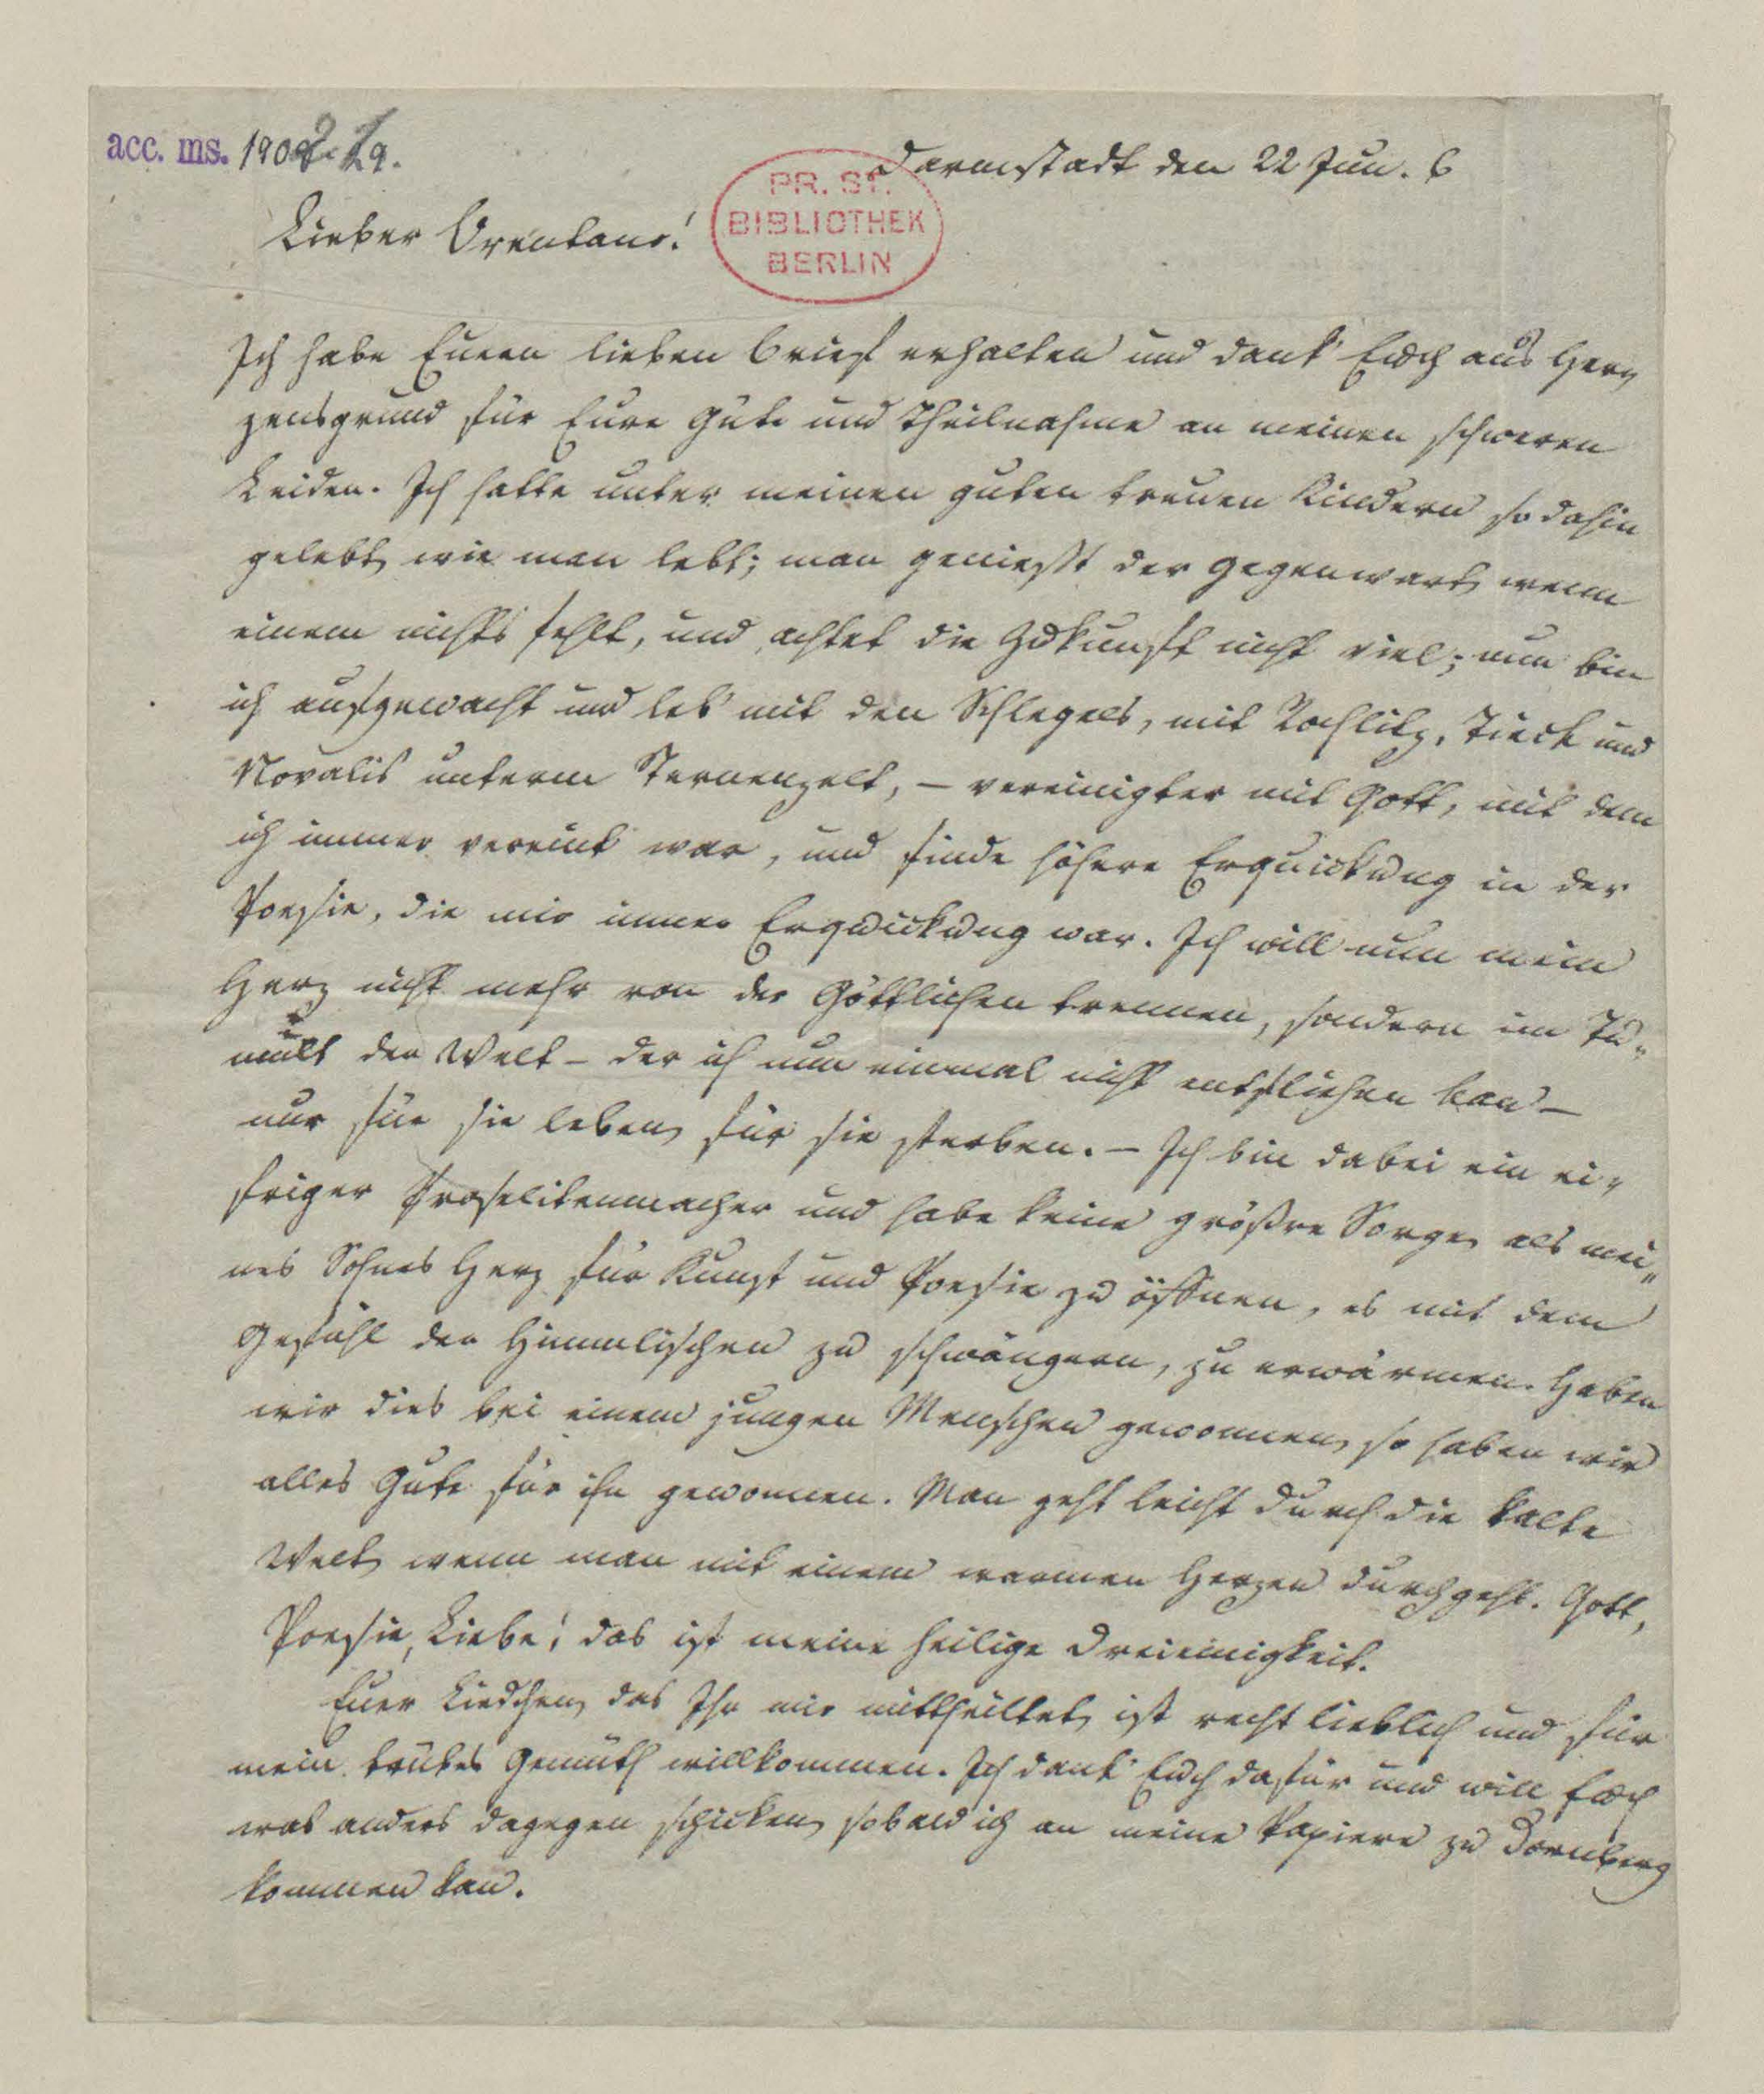 acc. ms. 1908. 29.
Darmstadt den 22 Jun. 6
PR. ST.
BIBLIOTHEK
BERLIN
Lieber Brentano!
Ich habe Euren lieben Brief erhalten und dank' Euch aus Her„
zensgrund für Eure Güte und Theilnahme an meinen schweren
Leiden. Ich hatte unter meinen guten treuen Kindern so dahin
gelebt, wie man lebt; man genießt der Gegenwart, wenn
einem nichts fehlt, und achtet die Zukunft nicht viel; nun bin
ich aufgewacht und leb' mit den Schlegels, mit Rochlitz, Tieck und
Novalis unterm Sternenzelt, – vereinigter mit Gott, mit dem
ich immer vereint war, und finde höhere Erquickung in der
Poesie, die mir immer Erquickung war. Ich will nun mein
Herz nicht mehr von der Göttlichen trennen, sondern im Tu„
mult der Welt – der ich nun einmal nicht entfliehen kan –
nur für sie leben, für sie sterben. – Ich bin dabei ein ei„
friger Proselitenmacher und habe keine größre Sorge, als mei„
nes Sohnes Herz für Kunst und Poesie zu öffnen, es mit dem
Gefühl der Himmlischen zu schwängern, zu erwärmen. Haben
wir dies bei einem jungen Menschen gewonnen, so haben wir
alles Gute für ihn gewonnen. Man geht leicht durch die kalte
Welt, wenn man mit einem warmen Herzen durchgeht. Gott,
Poesie, Liebe! das ist meine heilige Dreieinigkeit.
Euer Liedchen, das Ihr mir mittheiltet, ist recht lieblich und für
mein trübes Gemüth willkommen. Ich dank' Euch dafür und will Euch
was anders dagegen schicken, sobald ich an meine Papiere zu Dornberg
kommen kan.